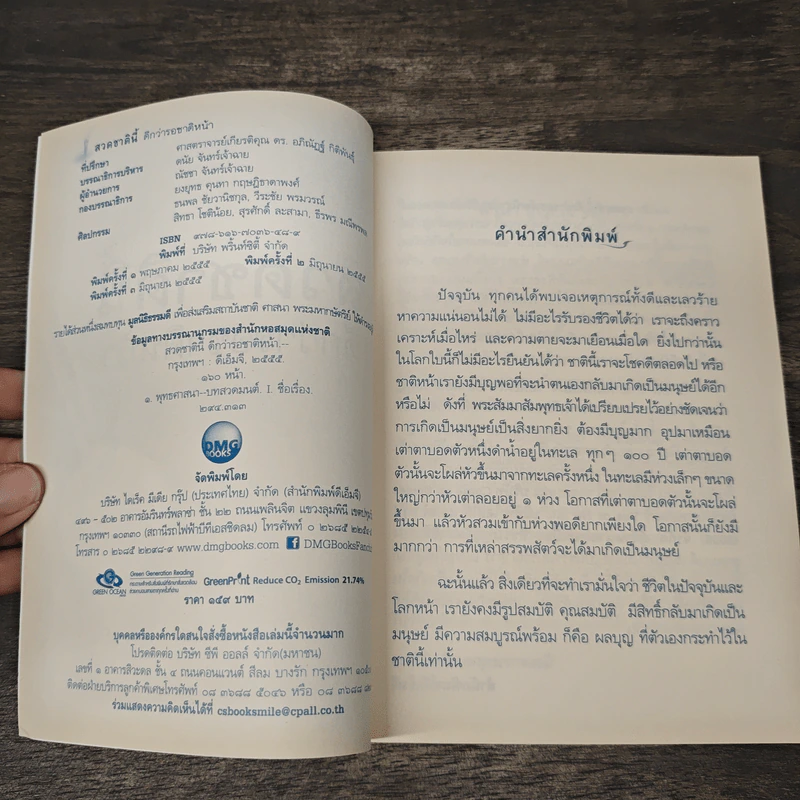 สวดชาตินี้ ดีกว่ารอชาติหน้า
ที่ปรึกษา ศาสตราจารย์เกียรติคุณ ดร. อภิณัฏฐ์ กิติพันธุ์
บรรณาธิการบริหาร ดนัย จันทร์เจ้าฉาย
ผู้อำนวยการ ณัชชา จันทร์เจ้าฉาย
กองบรรณาธิการ ยงยุทธ คุนทา กฤษฎิธาดาพงศ์
ธนพล ชัยวานิชกุล, วีระชัย พรมวรณ์
ศิลปกรรม สิทธา โชติน้อย, สุรศักดิ์ ละสามา, ธีรพร
ISBN ๙๗๘-๖๑๖-๗๐๓๖-๔๘-๙
พิมพ์ที่ บริษัท พริ้นท์ซิตี้ จำกัด
พิมพ์ครั้งที่ ๑ พฤษภาคม ๒๕๕๕ พิมพ์ครั้งที่ ๒ มิถุนายน ๒๕๕๕
พิมพ์ครั้งที่ ๓ มิถุนายน ๒๕๕๕
รายได้ส่วนหนึ่งสมทบทุน มูลนิธิธรรมดี เพื่อส่งเสริมสถาบันชาติ ศาสนา พระมหากษัตริย์
ข้อมูลทางบรรณานุกรมของสำนักหอสมุดแห่งชาติ
สวดชาตินี้ ดีกว่ารอชาติหน้า.--
กรุงเทพฯ : ดีเอ็มจี, ๒๕๕๕.
๑๖๐ หน้า.
๑. พุทธศาสนา--บทสวดมนต์. I. ชื่อเรื่อง.
๒๙๔.๓๑๓
DMG BOOKS
จัดพิมพ์โดย
บริษัท ไดเร็ค มีเดีย กรุ๊ป (ประเทศไทย) จำกัด (สำนักพิมพ์ดีเอ็มจี)
๔๙๖ - ๕๐๒ อาคารอัมรินทร์พลาซ่า ชั้น ๒๒ ถนนเพลินจิต แขวงลุมพินี
กรุงเทพฯ ๑๐๓๓๐ (สถานีรถไฟฟ้าบีทีเอสชิดลม) โทรศัพท์ ๐ ๒๖๘๕
โทรสาร ๐ ๒๖๘๕ ๒๒๙๘-๙ www.dmgbooks.com f
GREEN OCEAN Green Generation Reading GreenPrint Reduce CO2 Emission 21.74%
ราคา ๑๔๙ บาท
บุคคลหรือองค์กรใดสนใจสั่งซื้อหนังสือเล่มนี้จำนวนมาก
โปรดติดต่อ บริษัท ซีพี ออลล์ จำกัด(มหาชน)
เลขที่ ๑ อาคารสิวะดล ชั้น ๔ ถนนคอนแวนต์ สีลม บางรัก กรุงเทพฯ
ติดต่อฝ่ายบริการลูกค้าพิเศษโทรศัพท์ ๐๘ ๓๖๘๘ ๕๐๔๖ หรือ ๐๘ ๓๖๘๘
ร่วมแสดงความคิดเห็นได้ที่ csbooksmile@cpall.co.th
คำนำสำนักพิมพ์
ปัจจุบัน ทุกคนได้พบเจอเหตุการณ์ทั้งดีและเลวร้าย
หาความแน่นอนไม่ได้ ไม่มีอะไรรับรองชีวิตได้ว่า เราจะถึงคราว
เคราะห์เมื่อไหร่ และความตายจะมาเยือนเมื่อใด ยิ่งไปกว่านั้น
ในโลกใบนี้ก็ไม่มีอะไรยืนยันได้ว่า ชาตินี้เราจะโชคดีตลอดไป หรือ
ชาติหน้าเรายังมีบุญพอที่จะนำตนเองกลับมาเกิดเป็นมนุษย์ได้อีก
หรือไม่ ดังที่ พระสัมมาสัมพุทธเจ้าได้เปรียบเปรยไว้อย่างชัดเจนว่า
การเกิดเป็นมนุษย์เป็นสิ่งยากยิ่ง ต้องมีบุญมาก อุปมาเหมือน
เต่าตาบอดตัวหนึ่งดำน้ำอยู่ในทะเล ทุกๆ ๑๐๐ ปี เต่าตาบอด
ตัวนั้นจะโผล่หัวขึ้นมาจากทะเลครั้งหนึ่ง ในทะเลมีห่วงเล็กๆ ขนาด
ใหญ่กว่าหัวเต่าลอยอยู่ ๑ ห่วง โอกาสที่เต่าตาบอดตัวนั้นจะโผล่
ขึ้นมา แล้วหัวสวมเข้ากับห่วงพอดียากเพียงใด โอกาสนั้นก็ยังมี
มากกว่า การที่เหล่าสรรพสัตว์จะได้มาเกิดเป็นมนุษย์
ฉะนั้นแล้ว สิ่งเดียวที่จะทำเรามั่นใจว่า ชีวิตในปัจจุบันและ
โลกหน้า เรายังคงมีรูปสมบัติ คุณสมบัติ มีสิทธิ์กลับมาเกิดเป็น
มนุษย์ มีความสมบูรณ์พร้อม ก็คือ ผลบุญ ที่ตัวเองกระทำไว้ใน
ชาตินี้เท่านั้น